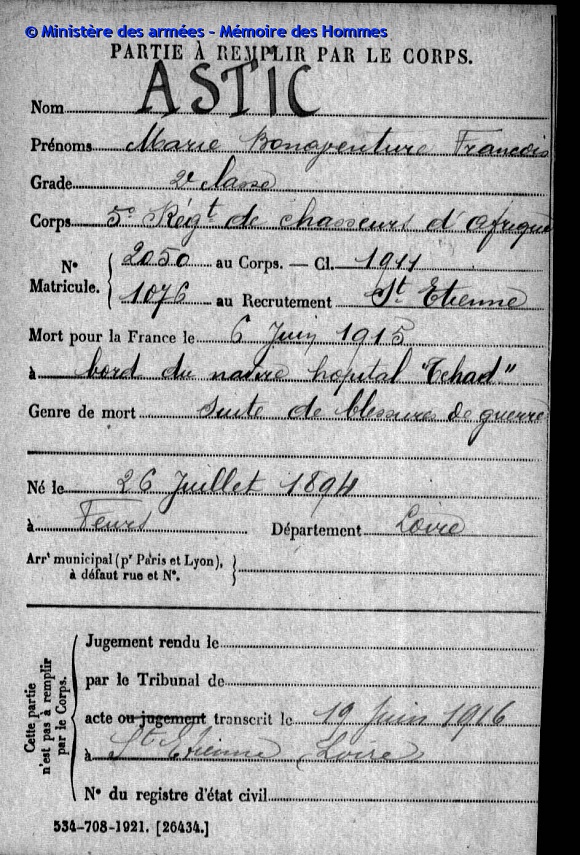 © Ministère des armées - Mémoire des Hommes
PARTIE À REMPLIR PAR LE CORPS.
Nom ASTIC
Prénoms Marie Bonaventure Francois
Grade 2e classe
Corps 5e Régt de chasseurs d'Afrique
N° Matricule. 2050 au Corps. — Cl. 1911
1076 au Recrutement St Etienne
Mort pour la France le 6 Juin 1915
à bord du navire hopital "Tchad"
Genre de mort suite de blessures de guerre
Né le 26 Juillet 1894
à Feurs Département Loire
Arrt municipal (pr Paris et Lyon),
à défaut rue et N°.
Cette partie n'est pas à remplir par le Corps.
Jugement rendu le
par le Tribunal de
acte ou jugement transcrit le 19 Juin 1916
à St Etienne (Loire)
N° du registre d'état civil
534-708-1921. [26434.]